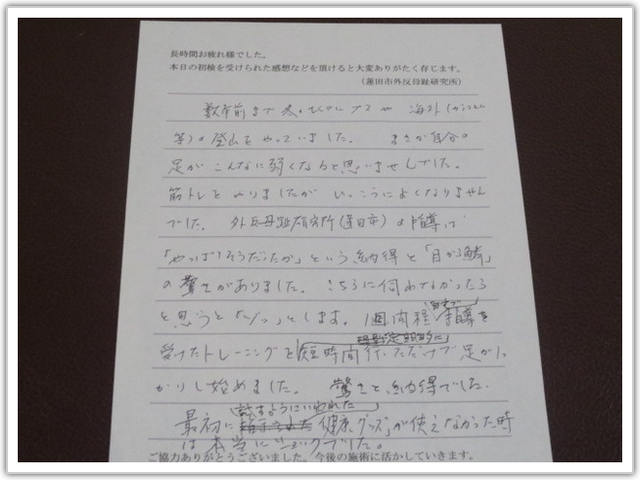 長時間お疲れ様でした。
本日の初検を受けられた感想などを頂けると大変ありがたく存じます。
（蓮田市外反母趾研究所）
数年前まで冬の アルプスや 海外（
等）の登山をやっていました。 まさか自分の
足がこんなに弱くなると思いませんでした。
筋トレをやりましたが いっこうによくなりません
でした。 外反母趾研究所（蓮田市）の指導で
「やっぱりそうだったか」という納得と「目から鱗」
の驚きがありました。 こちらに伺わなかったら
と思うと「ゾッ」とします。 1週間程 自宅で 指導を
受けたトレーニングを 短時間行っただけで足がしっ
かりし始めました。 驚きと納得でした。
最初に 「試すようにいわれた」 健康グッズが使えなかった時
は本当にショックでした。
ご協力ありがとうございました。今後の施術に活かしていきます。